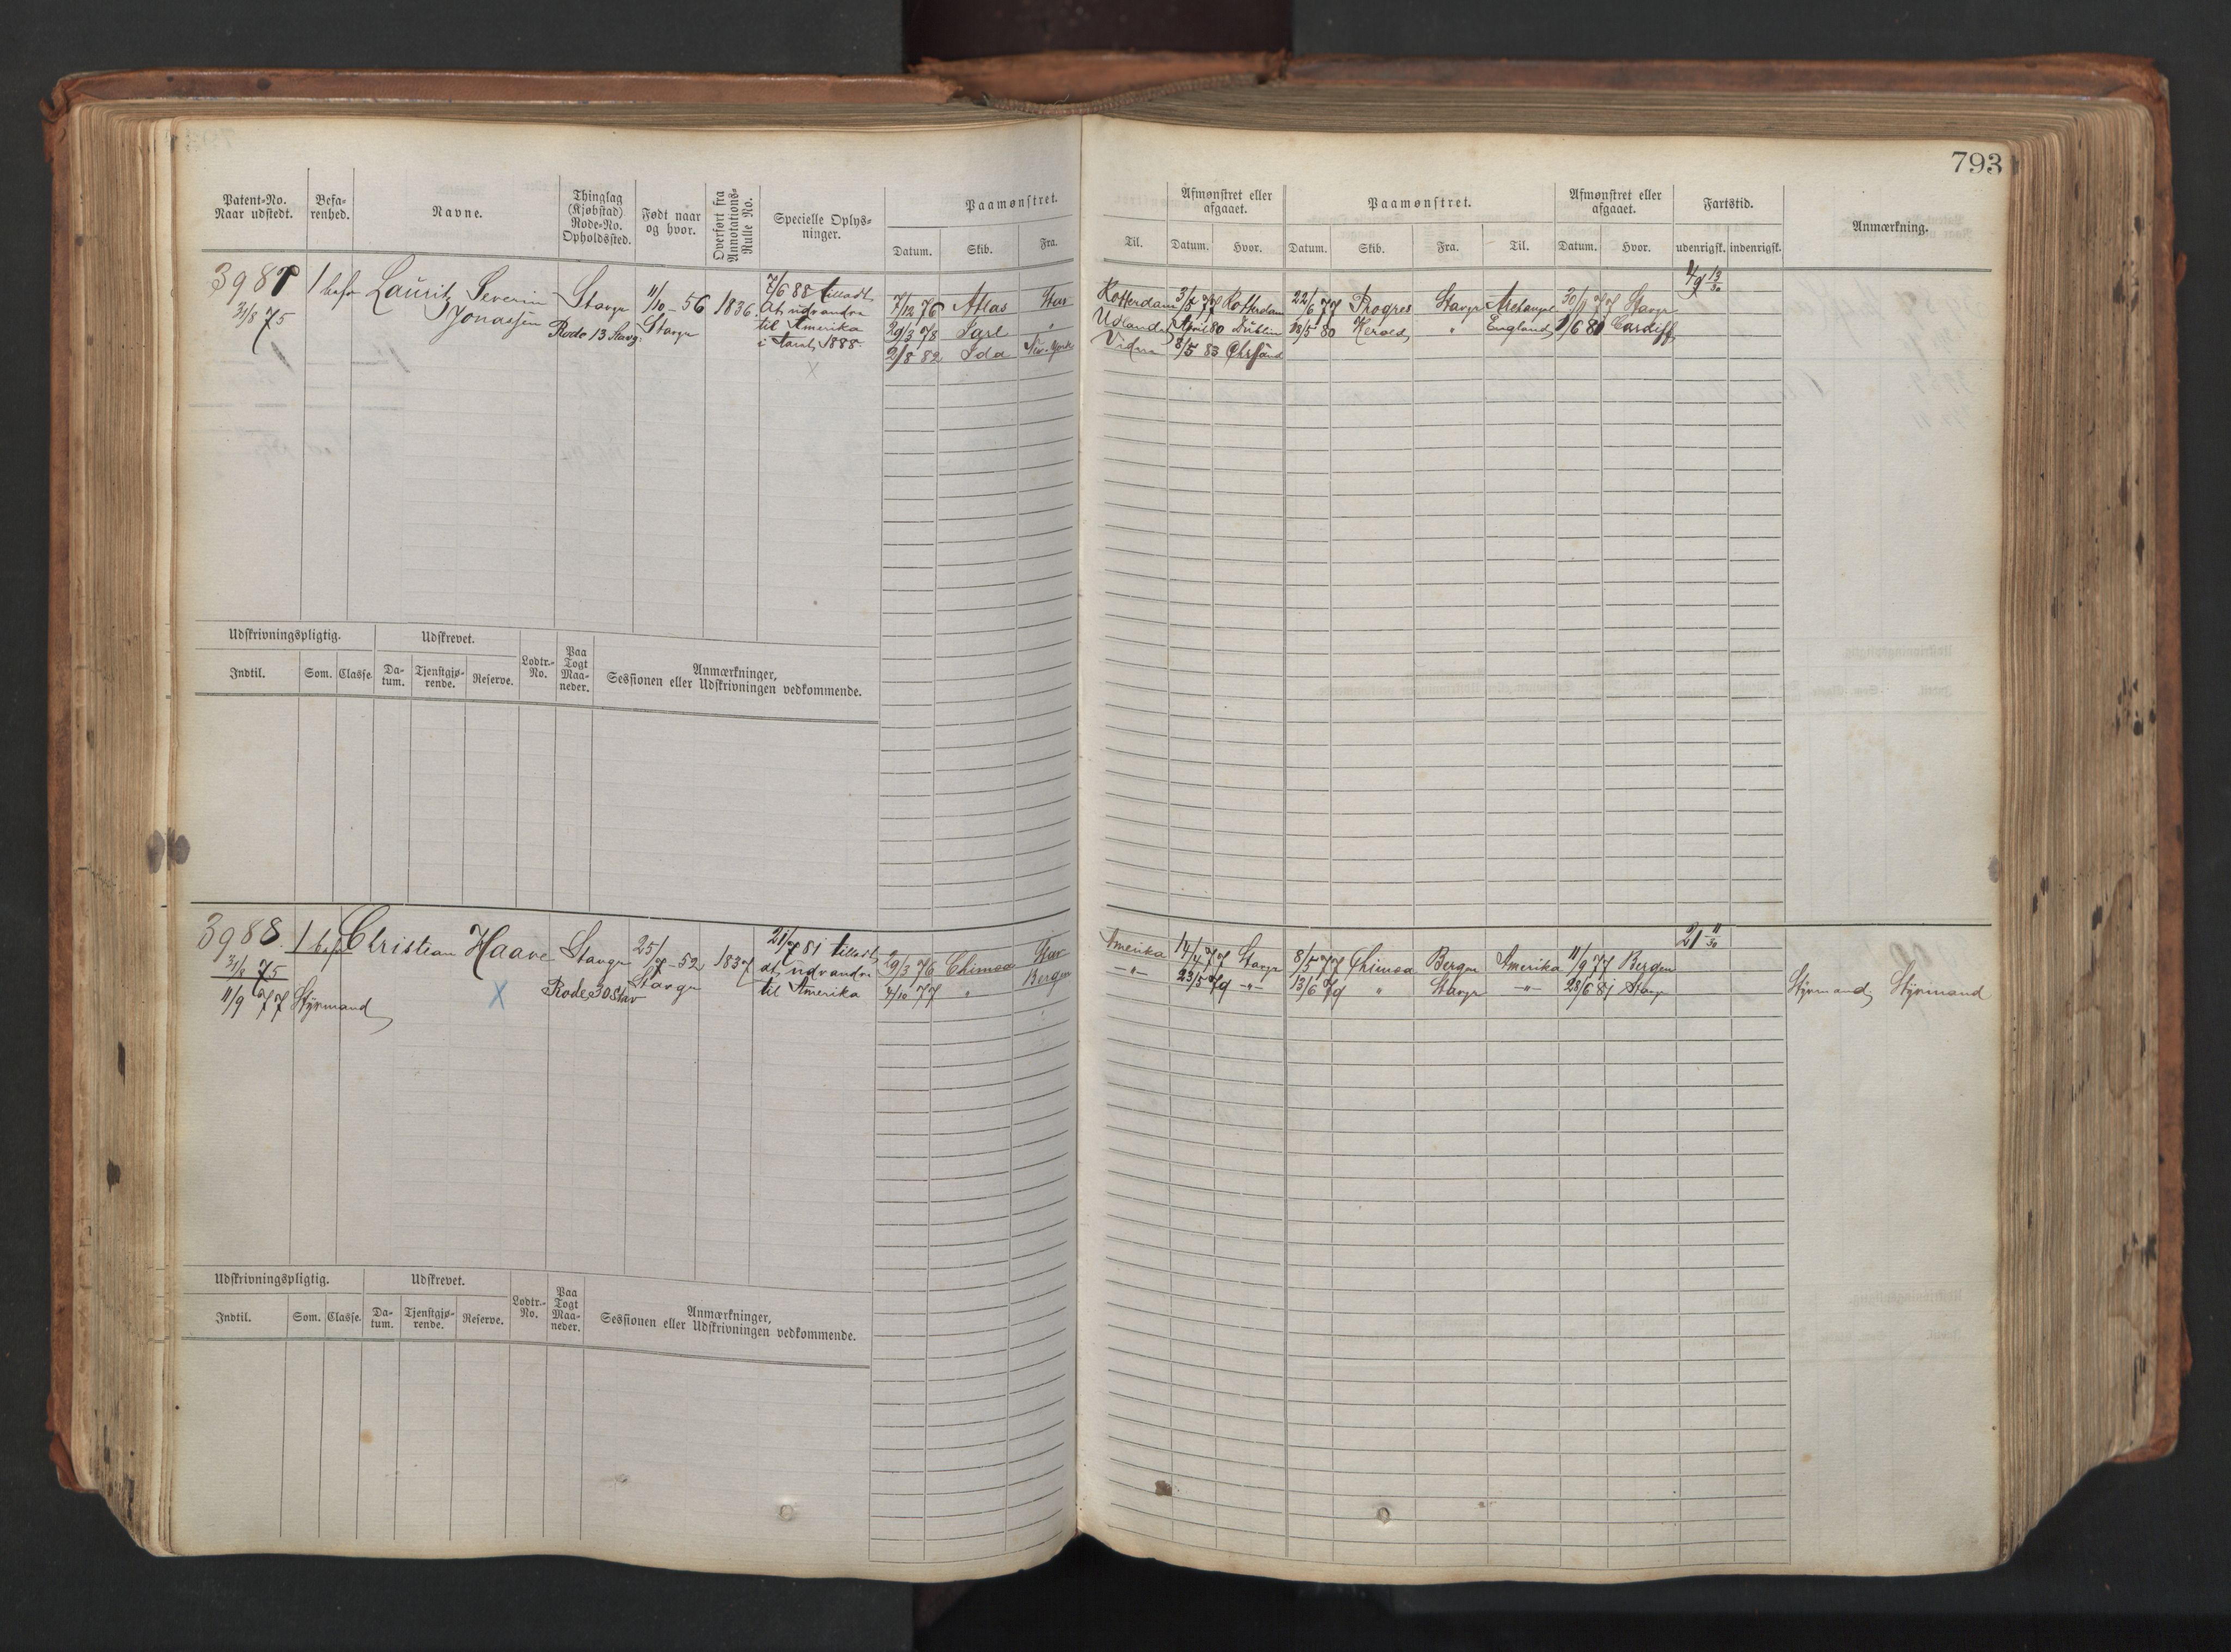 793
Patent-No. Naar udstedt.
Befa-renhed.
Navne.
Thinglag (Kjøbstad) Rode-No. Opholdssted.
Født naar og hvor.
Overført fra Annotations-Rulle No.
Specielle Oplys-ninger.
Paamønstret.
Datum. Skib. Fra.
Til.
Afmønstret eller afgaaet.
Datum. Hvor.
Paamønstret.
Datum. Skib. Fra. Til.
Afmønstret eller afgaaet.
Datum. Hvor.
Fartstid.
udenrigsk. indenrigsk.
Anmærkning.
3987
31/8 75
1 bef
Lauritz Severin
Jonassen
Stavgr
Rode 13 Stavg.
11/10 - 56
Stavgr
1836
7/6 88 tilladt
at udvandre
til Amerika
1888.
7/12 76 Atlas Stav
29/3 78 Jarl "
2/8 82 Ida New-York
Rotterdam 3/5 77 Rotterdam 22/6 77 Progres Stavgr Archangel 30/11 77 Stavgr
Udlandet April 80 Dublin 18/5 80 Herold " England /6 81 Cardiff
8/5 83 Chrsand
49 13/30
Udskrivningspligtig. Udskrevet. Lodtr.-No. Paa Togt Maa-neder. Anmærkninger, Sessionen eller Udskrivningen vedkommende.
Indtil. Som. Classe. Da-tum. Tjenstgjø-rende. Reserve.
3988
31/8 75
11/9 77 Styrmand
1 bef
Christian Haave
X
Stavgr
Rode 30 Stav
25/7 - 52
Stavgr
1837
21/7 81 tilladt
at udvandre
til Amerika
29/3 76 Chimoa Stav
4/10 77 " Bergen
Amerika 14/4 77 Stavgr 8/5 77 Chimoa Bergen Amerika 11/9 77 Bergen
-"- 23/5 79 -"- 13/6 79 " Stavgr -"- 28/6 81 Stavgr
21 11/30
Styrmand, Styrmand
Udskrivningspligtig. Udskrevet. Lodtr.-No. Paa Togt Maa-neder. Anmærkninger, Sessionen eller Udskrivningen vedkommende.
Indtil. Som. Classe. Da-tum. Tjenstgjø-rende. Reserve.